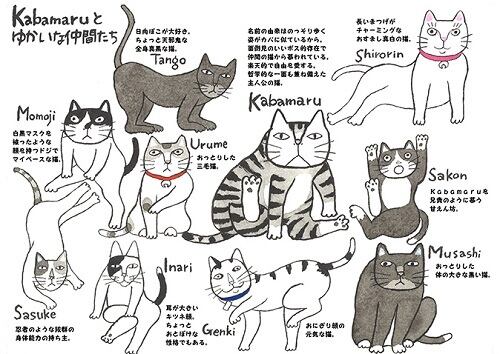 Kabamaruと
ゆかいな仲間たち
日向ぼこが大好き。
ちょっと天邪鬼な
全身真黒の猫。
Tango
名前の由来はのっそり歩く
姿がカバに似ているから。
面倒見のいいボス的存在で
仲間の猫から慕われている。
楽天的で自由を愛する。
哲学的な一面も兼ね備えた
主人公の猫。
Kabamaru
長いまつげが
チャーミングな
おすまし真白の猫。
Shirorin
Momoji
白黒マスクを
被ったような
顔を持つドジで
マイペースな猫。
Urume
おっとりした
三毛猫。
Sakon
Kabamaruを
兄貴のように慕う
甘えん坊。
Sasuke
忍者のような抜群の
身体能力の持ち主。
Inari
耳が大きい
キツネ顔。
ちょっと
おとぼけな
性格でもある。
Genki
おにぎり顔の
元気な猫。
Musashi
おっとりした
体の大きな黒い猫。